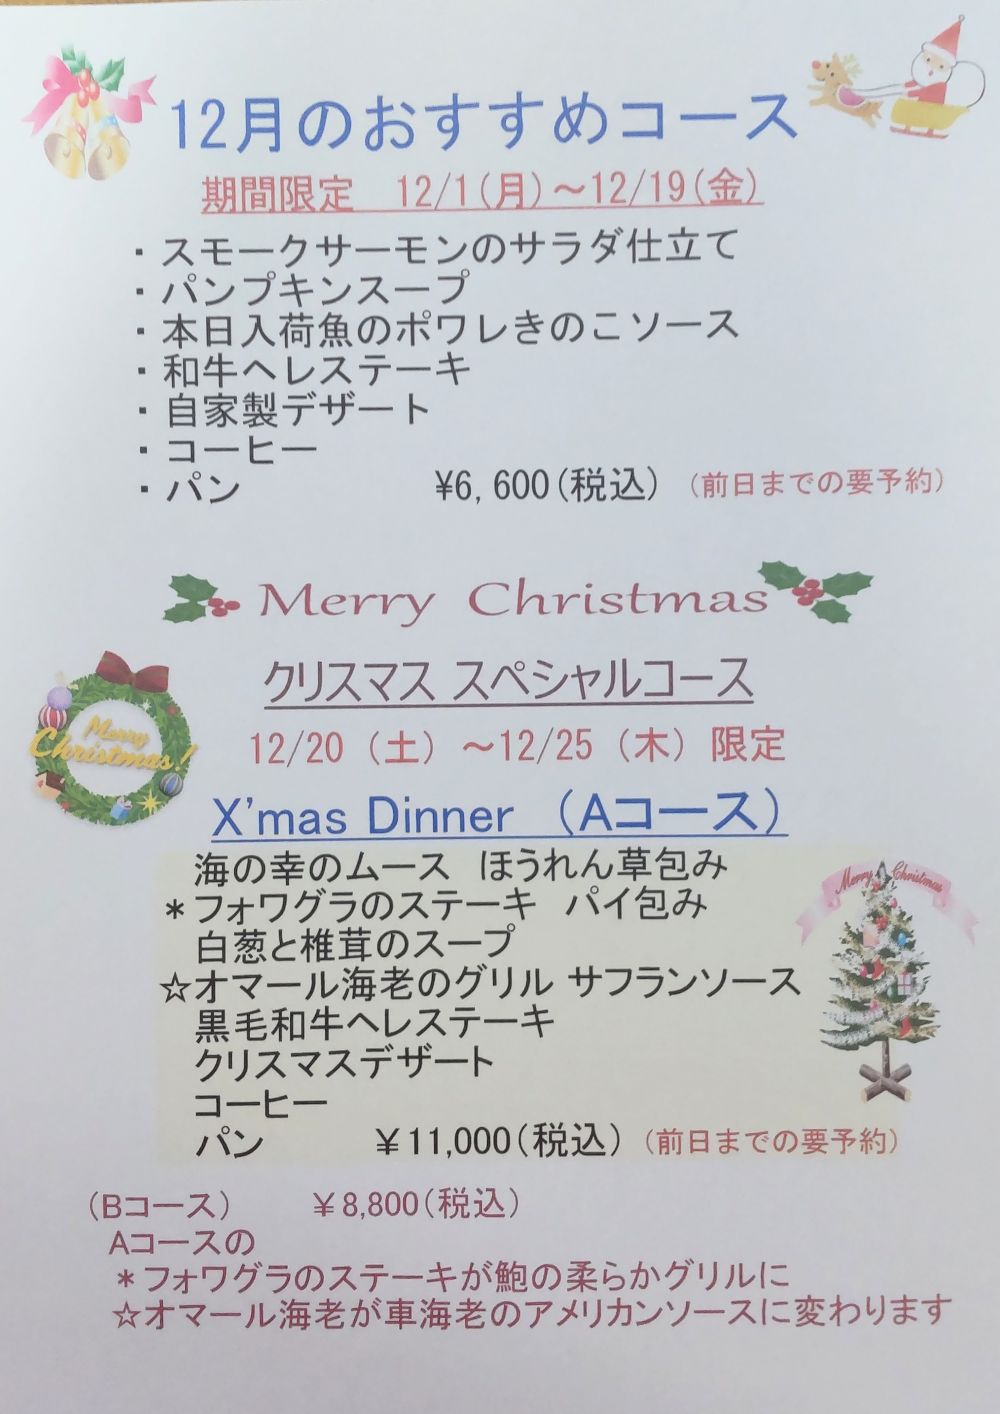 12月のおすすめコース
期間限定 12/1(月)～12/19(金)
・スモークサーモンのサラダ仕立て
・パンプキンスープ
・本日入荷魚のポワレきのこソース
・和牛ヘレステーキ
・自家製デザート
・コーヒー
・パン ¥6,600(税込) (前日までの要予約)
Merry Christmas
クリスマス スペシャルコース
Merry
Christmas!
12/20 (土) ～12/25 (木) 限定
X'mas Dinner (Aコース)
海の幸のムース ほうれん草包み
Merry Christmas
＊フォワグラのステーキ パイ包み
白葱と椎茸のスープ
☆オマール海老のグリル サフランソース
黒毛和牛ヘレステーキ
クリスマスデザート
コーヒー
パン ￥11,000(税込) (前日までの要予約)
(Bコース) ￥8,800(税込)
Aコースの
＊フォワグラのステーキが鮑の柔らかグリルに
☆オマール海老が車海老のアメリカンソースに変わります